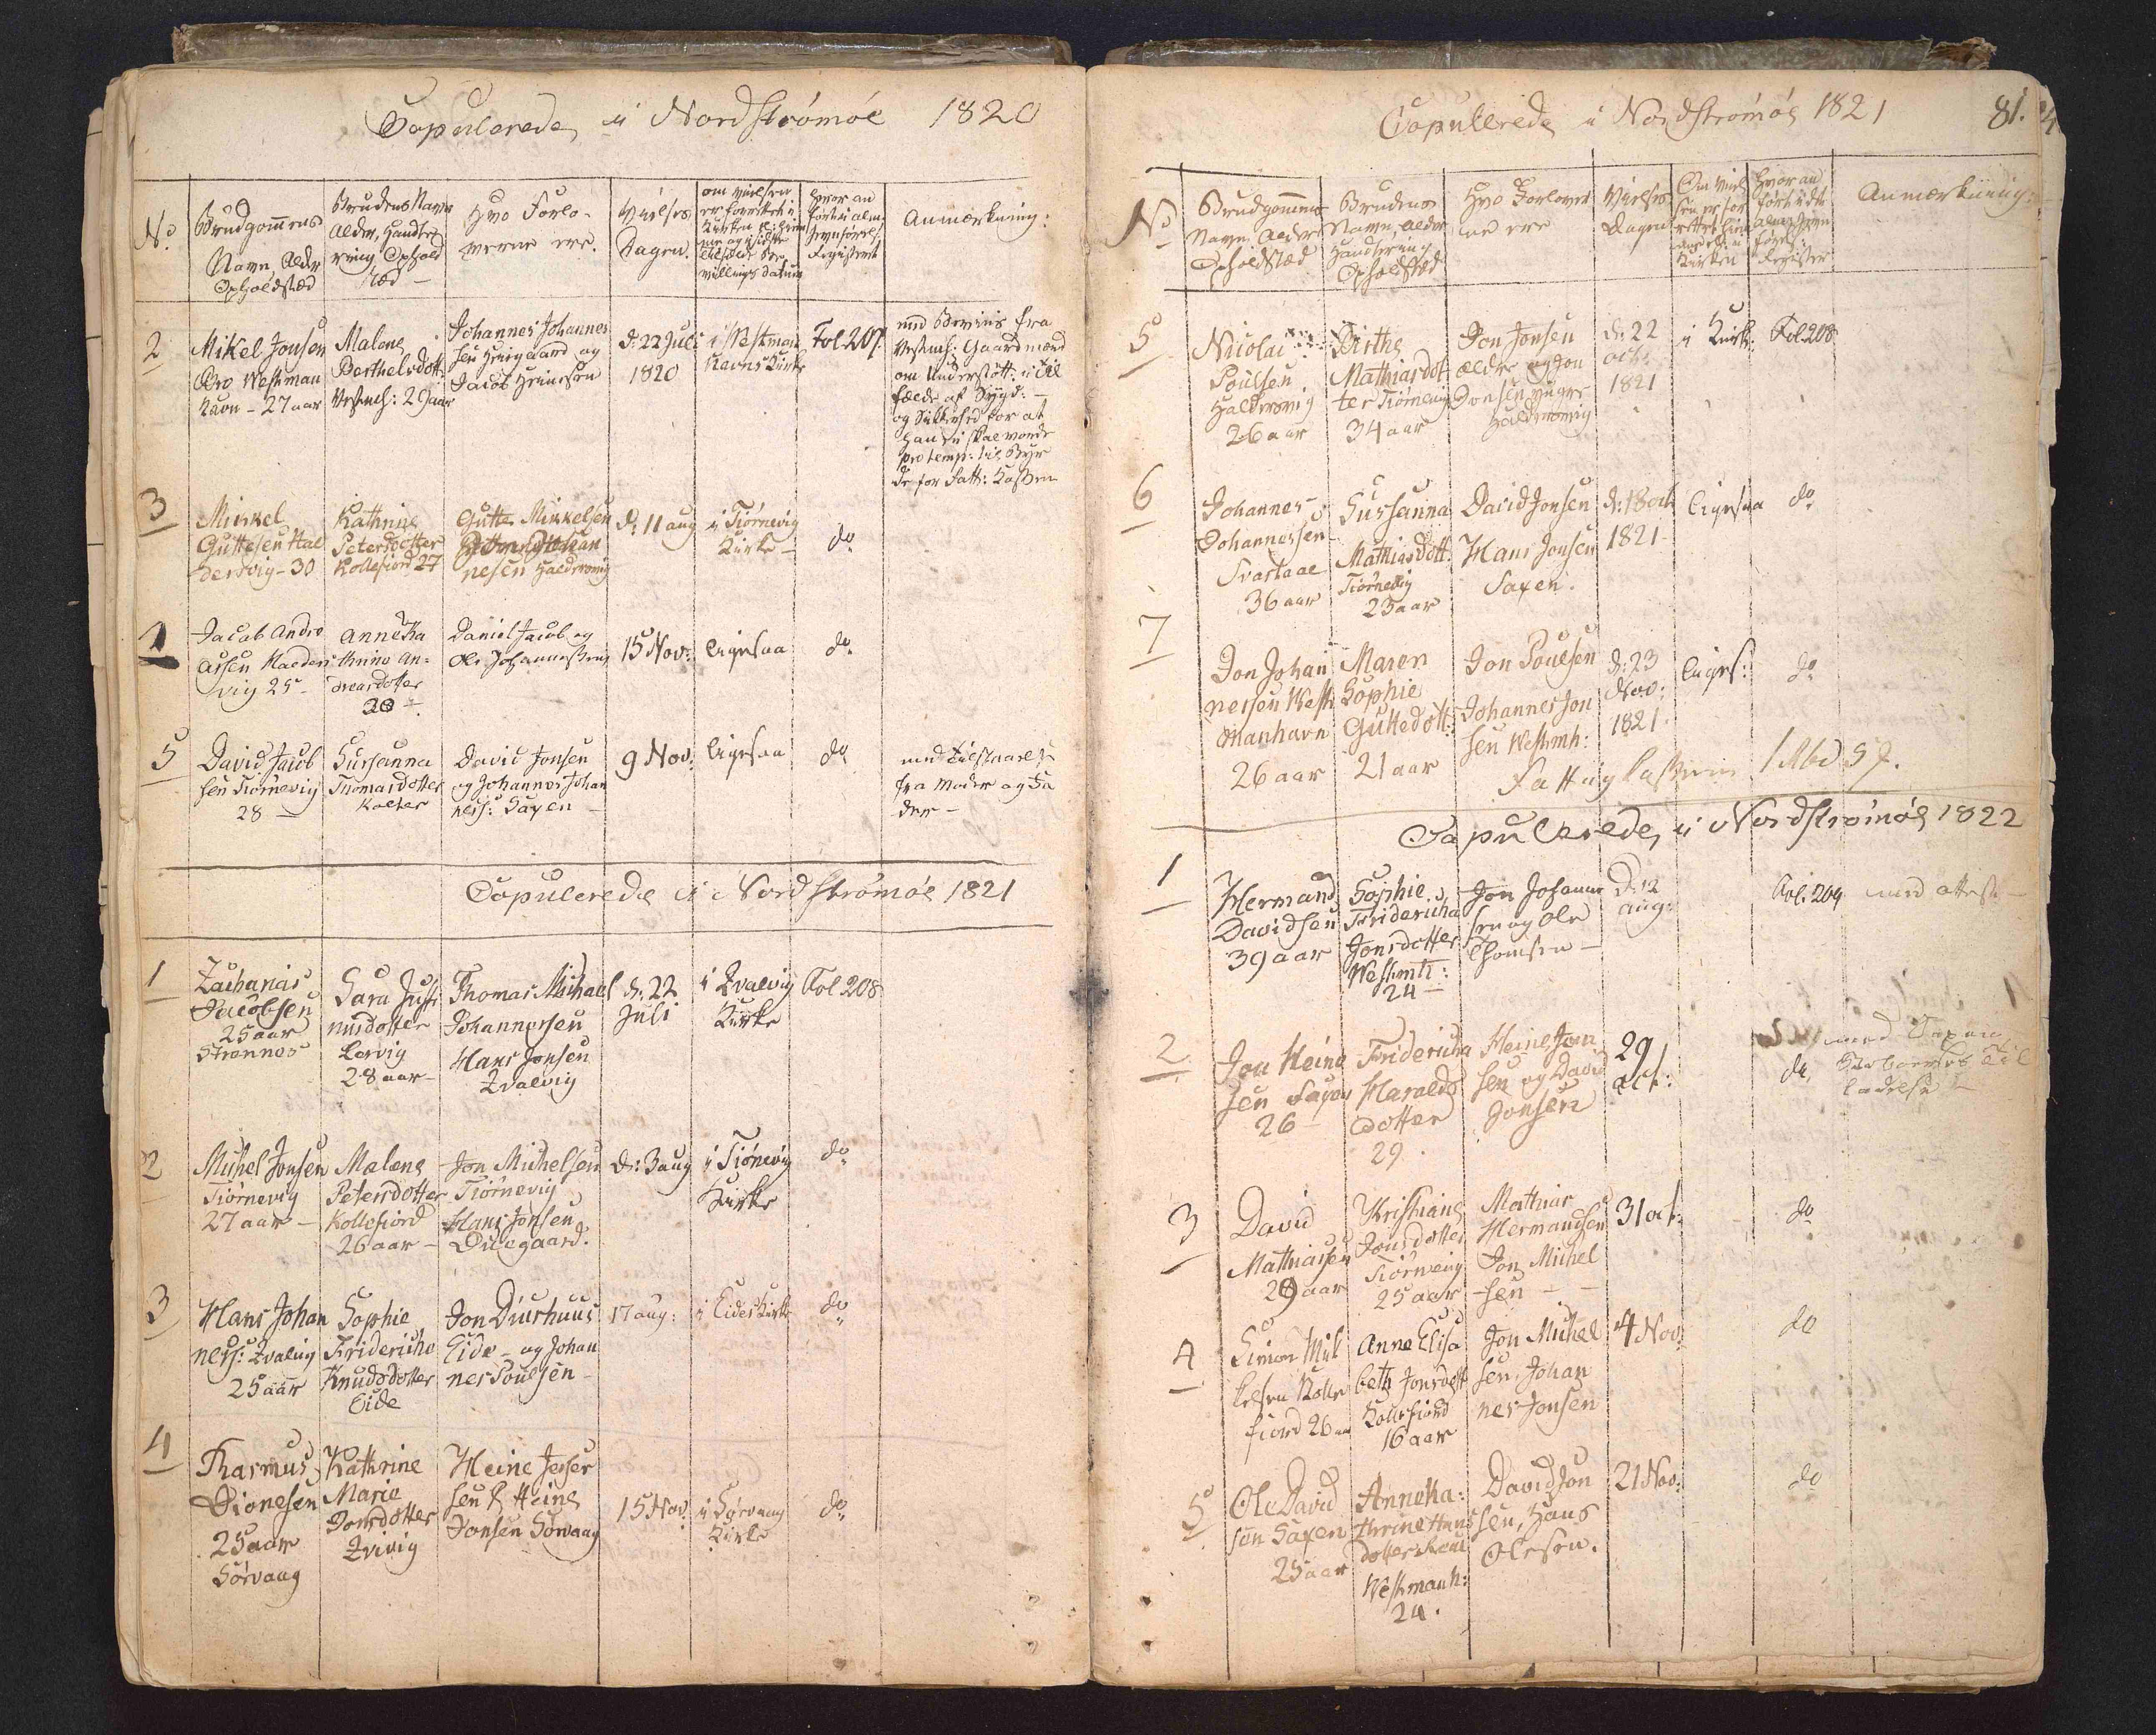 Copulerede i Nordstrømøe 1820
No.
Brudgommens
Navn, Alder
Opholdsted
Brudens Navn
Alder, Handte-
ring Ophold
sted
Hvo Forlo-
verne ere.
Vielses
Dagen.
om vielsen
er forrettet i
Kirken
Hvor an
ført i alm:
Jevnførels.
Registeret
Anmærkning:
2
Mikel Jonsen
Westman
havn - 27 aar
Malene
Berthelsdott:
Vestmh: 29 aar
Johannes Johannes
sen Heigaard og
Jacob Heinesen
d: 22 Juli
1820
i Westman
havns Kirke
Fol. 207.
med Beviis fra
Vestmh: Gaardmænd
om Understøtt: i Til
fælde af Sygd: -
og Sikkerhed for at
han ei skal vorde
pro temp: til Byr
de for Fatt: Kassen
3
Mikkel
Guttesen Hal
dersvig - 30
Kathrine
Petersdotter
Kollefiord 27
Gutte Mikkelsen
nesen Haldersvig
d: 11 aug
i Tiørnevig
Kirke -
do
4
Jacob Andre
assen Haders
vig 25 -
Anne Ka
thrine An-
dreasdotter
20 -
Daniel Jacob og
Ole Johannessen
15 Nov:
ligesaa
do
5
David Jacob
sen Tiørnevig
28 -
Sussanna
Thomasdotter
Kolter
David Jonsen
og Johannes Johan
ness: Saxen -
9 Nov:
ligesaa
do
med Tilstaaelse
fra Moder og Fa
der -
Copulerede i Nordstrømøe 1821
1
Zacharias
Jacobsen
25 aar
Strænnes
Sara Justi
nusdotter
Lervig
28 aar -
Thomas Michael
Johannesen
Hans Jonsen
Qvalvig
d: 22
Juli
i Qvalvig
Kirke
Fol 208
2
Michel Jonsen
Tiørnevig
27 aar -
Malene
Petersdotter
Kollefiord
26 aar -
Jon Michelsen
Tiørnevig
Hans Jonsen
Duegaard.
d: 3 aug
i Tiørnevig
Kirke
do
3
Hans Johan
ness: Qvalvig
25 aar
Sophie
Fridericha
Knudsdotter
Eide
Jon Diurhuus
Eide - og Johan
nes Poulsen -
17 aug:
i Eides Kirke
do
4
Rasmus
Dionesen
25 aar
Sørvaag
Kathrine
Marie
Jonsdotter
Qvivig
Heine Jesper
sen & Heine
Jonsen Sørvaag
15 Nov:
i Sørvaag
Kirke
do
Copulerede i Nordstrømøe 1821
81.
No
Brudgommens
Navn Alder
Opholdsted
Brudens
Navn, Alder
Handtering
Opholdsted
Hvo Forlover
ne ere
Vielses
Dagen
Om viel
sen er for
rettet
Kirken
Hvor an
ført i det
alm: Jevn
førel:
Register
Anmærkning:
5
Nicolai
Poulsen
Haldersvig
26 aar
Birthe
Mathiasdot
ter Tiørnevig
34 aar
Jon Jonsen
ældre og Jon
Jonsen yngre
Haldersvig
d: 22
oct:
1821
i Kirk:
Fol. 208
6
Johannes
Johannessen
Svartaae
36 aar
Sussanna
Mathiasdott:
Tiørnevig
23 aar
David Jonsen
Hans Jonsen
Saxen.
d: 18 oct
1821-
ligesaa
do
7
Jon Johan
nesen West
manhavn
26 aar
Maren
Sophie
Guttedott:
21 aar
Jon Poulsen
Johannes Jon
sen Westmh:
d: 23
Nov:
1821.
liges:
do
Fattig Kassen 1 Rbd
Copulerede i Nordstrømøe 1822
1
Hermand
Davidsen
39 aar
Sophie
Fridericha
Jonsdotter
Westmh:
24 -
Jon Johanne
sen og Ole
Thomsen -
D: 12
aug:
Fol. 209
med attest -
2
Jon Heine
sen Saxen
26 -
Fridericha
Haralds
dotter
29.
Heine Jon
sen og David
Jonsen
29
oct:
do,
med
ladelse
3
David
Mathiasen
29 aar
Kristiane
Jonsdotter
Tiørnevig
25 aar
Mathias
Hermandsen
Jon Michel
sen -
31 oct:
do
4
Simon Mik
kelsen Kolle
fiord 26 aar
Anne Elisa
beth Jonsdott
Kollefiord
16 aar
Jon Michel
sen, Johan
nes Jonsen
4 Nov:
do
5
Ole David
sen Saxen
25 aar
Anne Ka:
thrine Hans
dotter
Westmanh:
24.
David Jon
sen, Hans
Olesen.
21 Nov:
do